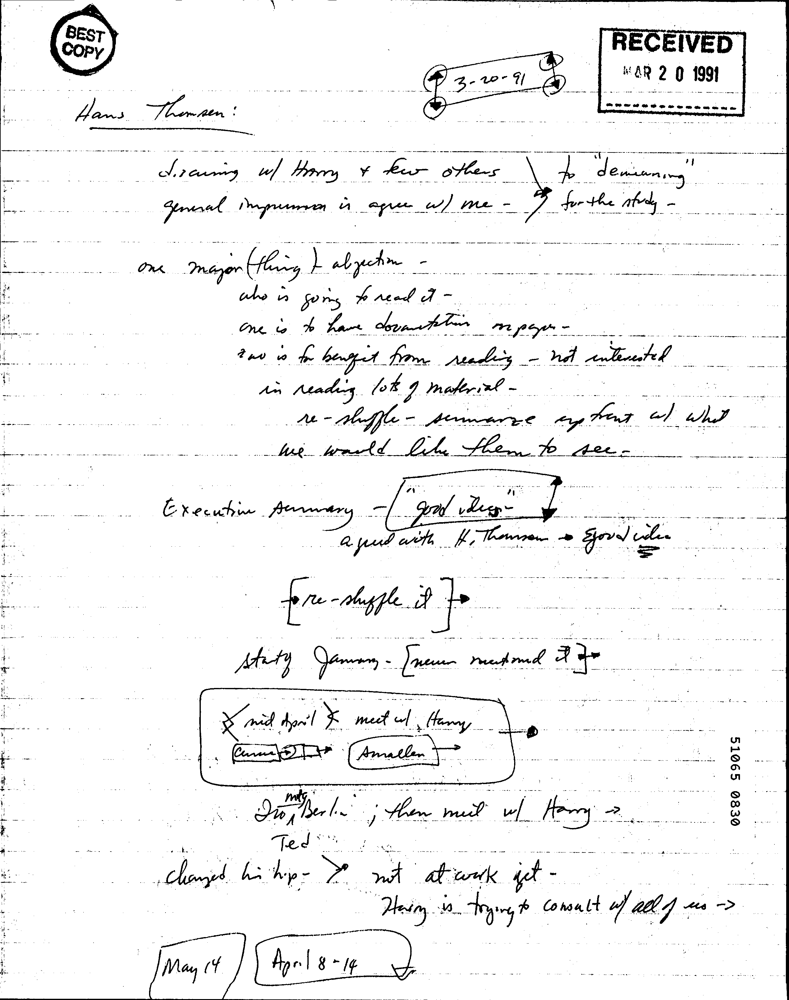 BEST
COPY
RECEIVED
MAR 20 1991
3-20-91
Hans Thomsen:
w/ Harry + few others to "demeaning"
general impression is agree w/ me - for the study -
one major (thing) objection -
who is going to read it -
one is to have on paper -
two is for benefit from reading - not interested
in reading lots of material -
re-shuffle - summarize up front w/ what
we would like them to see -
Executive Summary - "good idea"
agreed with H. Thomsen good idea
[re-shuffle it]
January - [never mentioned it]
mid April meet w/ Harry
smaller
mtg
Berlin ; then meet w/ Harry →
Ted
changed his hip - not at work yet -
Harry is trying to consult w/ all of us →
May 14 April 8-14
51065 0830